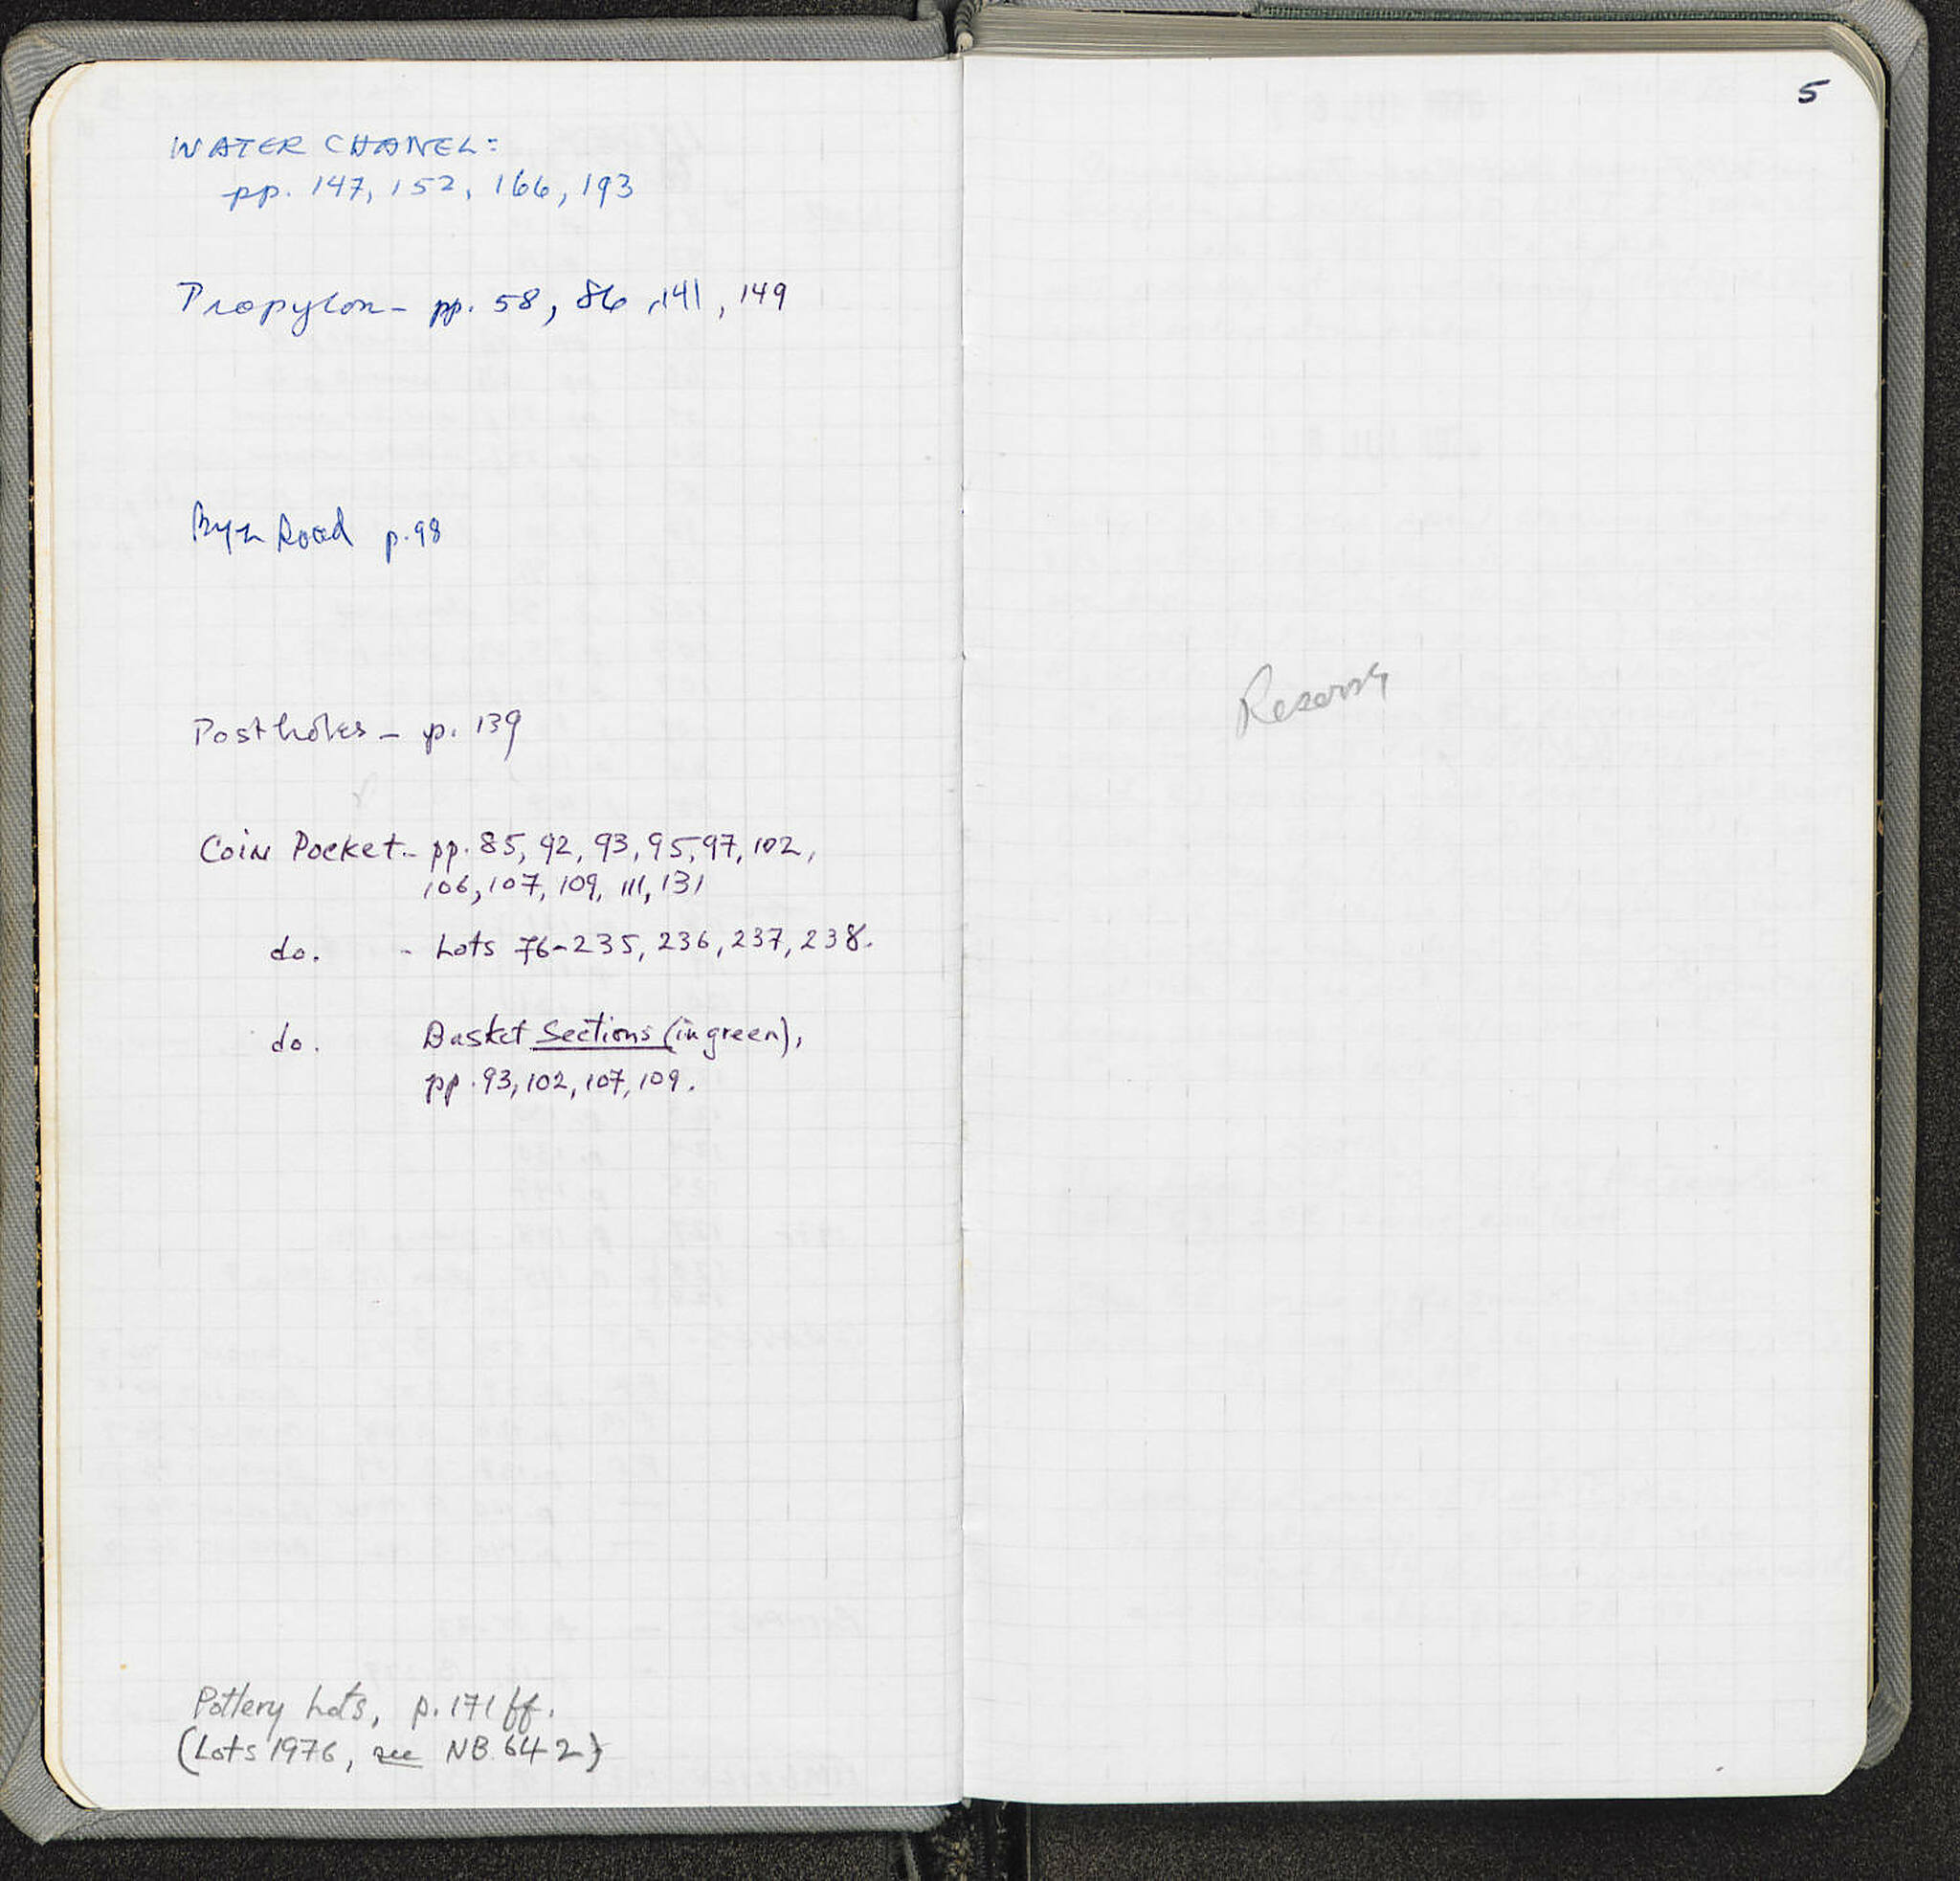 WATER CHANEL:
pp. 147, 152, 166, 193
Propylon - pp. 58, 86, 141, 149
Byz Road p. 98
Postholes - p. 139
Coin Pocket - pp. 85, 92, 93, 95, 97, 102,
106, 107, 109, 111, 131
do. - Lots 76-235, 236, 237, 238.
do. Basket Sections (in green),
pp. 93, 102, 107, 109.
Pottery Lots, p. 171 ff.
(Lots 1976, see NB 642)
5